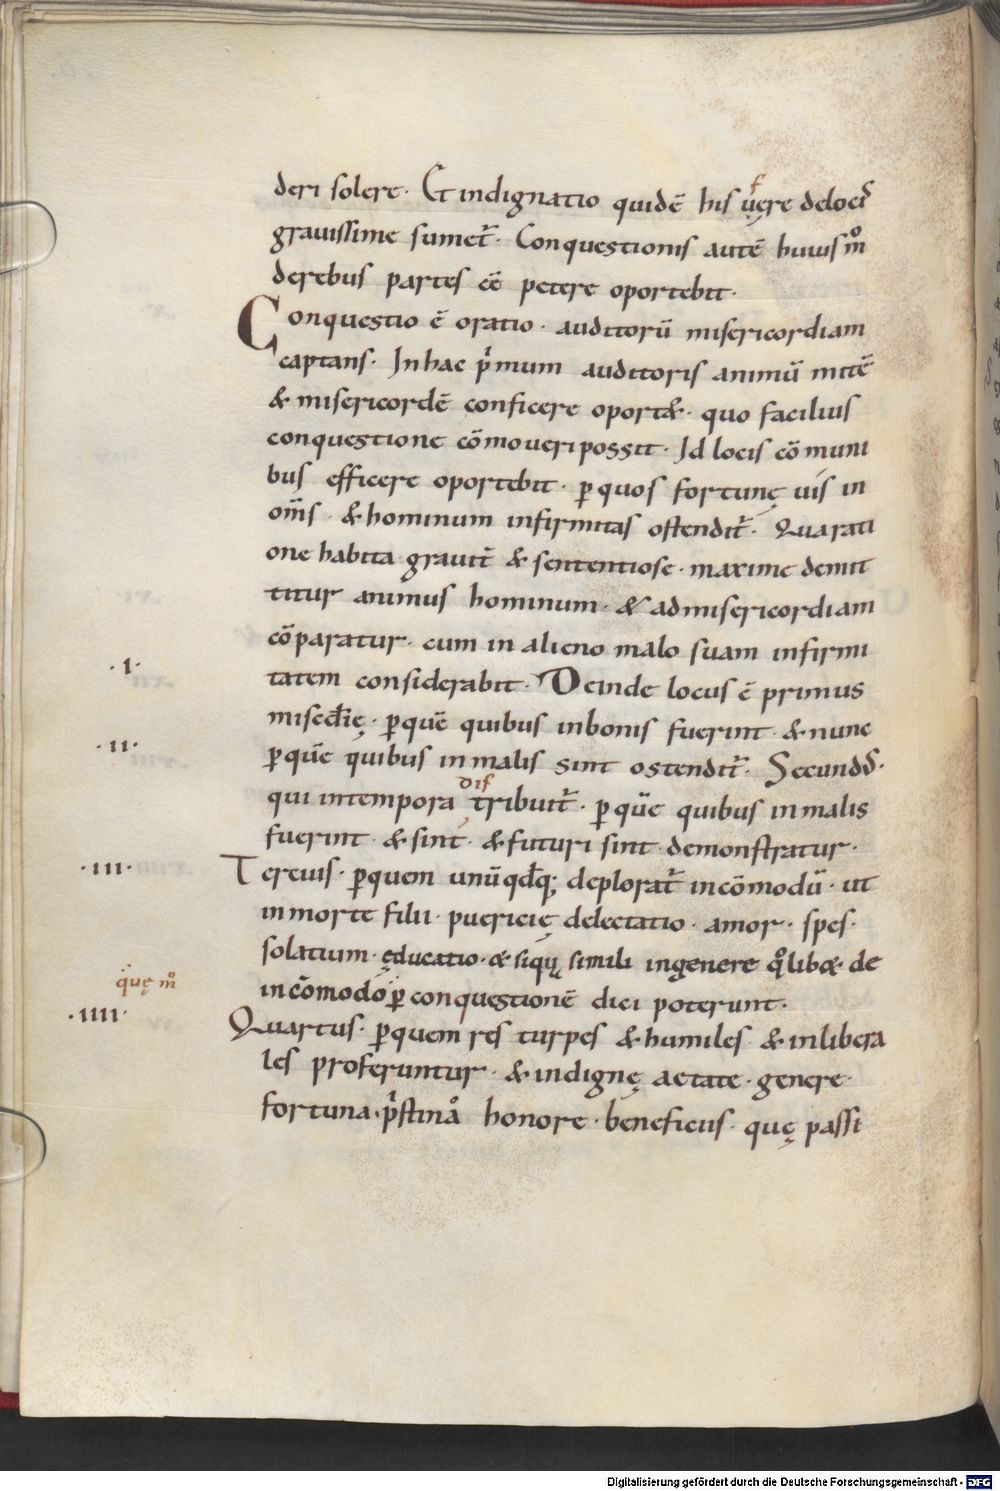 deri solere· Et indignatio quidē his f uęre deloci᷒
grauissime sumet᷑· Conquestionis autē huius m̊
derebus partes eē petere oportebit·
Conquestio ē oratio· auditorū misericordiam
captans· In hac p̍mum auditoris animū mitē
& misericordē conficere oport&· quo facilius
conquestione cōmoveri possit· Id locis cōmuni
bus efficere oportebit· ꝑ quos fortunę uis in
om̄s· & hominum infirmitas ostendit᷑· Qua rati
one habita grauit᷑ & sententiose· maxime demit
titur animus hominum· & ad misericordiam
cōparatur· cum in alieno malo suam infirmi
·I· tatem considerabit· Deinde locus ē primus
misc̄dię· ꝑquē quibus inbonis fuerint & nunc
·II· ꝑquē quibus in malis sint ostendit᷑· Secund᷒·
dif
qui intempora tribuit᷑· ꝑ quē quibus in malis
fuerint· & sint· & futuri sint demonstratur·
·III· Tercius· ꝑquem unūqđq; deplorat᷑ incōmodū· ut
in morte filii· puericię delectatio· amor· spes·
solatium· ęducatio· & siqų simili ingenere q̊lib&· de
quę m̊
incōmodo ꝑ conquestionē dici poterunt·
·IIII· Quartus· ꝑquem res turpes & humiles & inlibera
les proferuntur· & indignę aetate· genere·
fortuna· p̍stina honore· beneficiis· quę passi
Digitalisierung gefördert durch die Deutsche Forschungsgemeinschaft - DFG